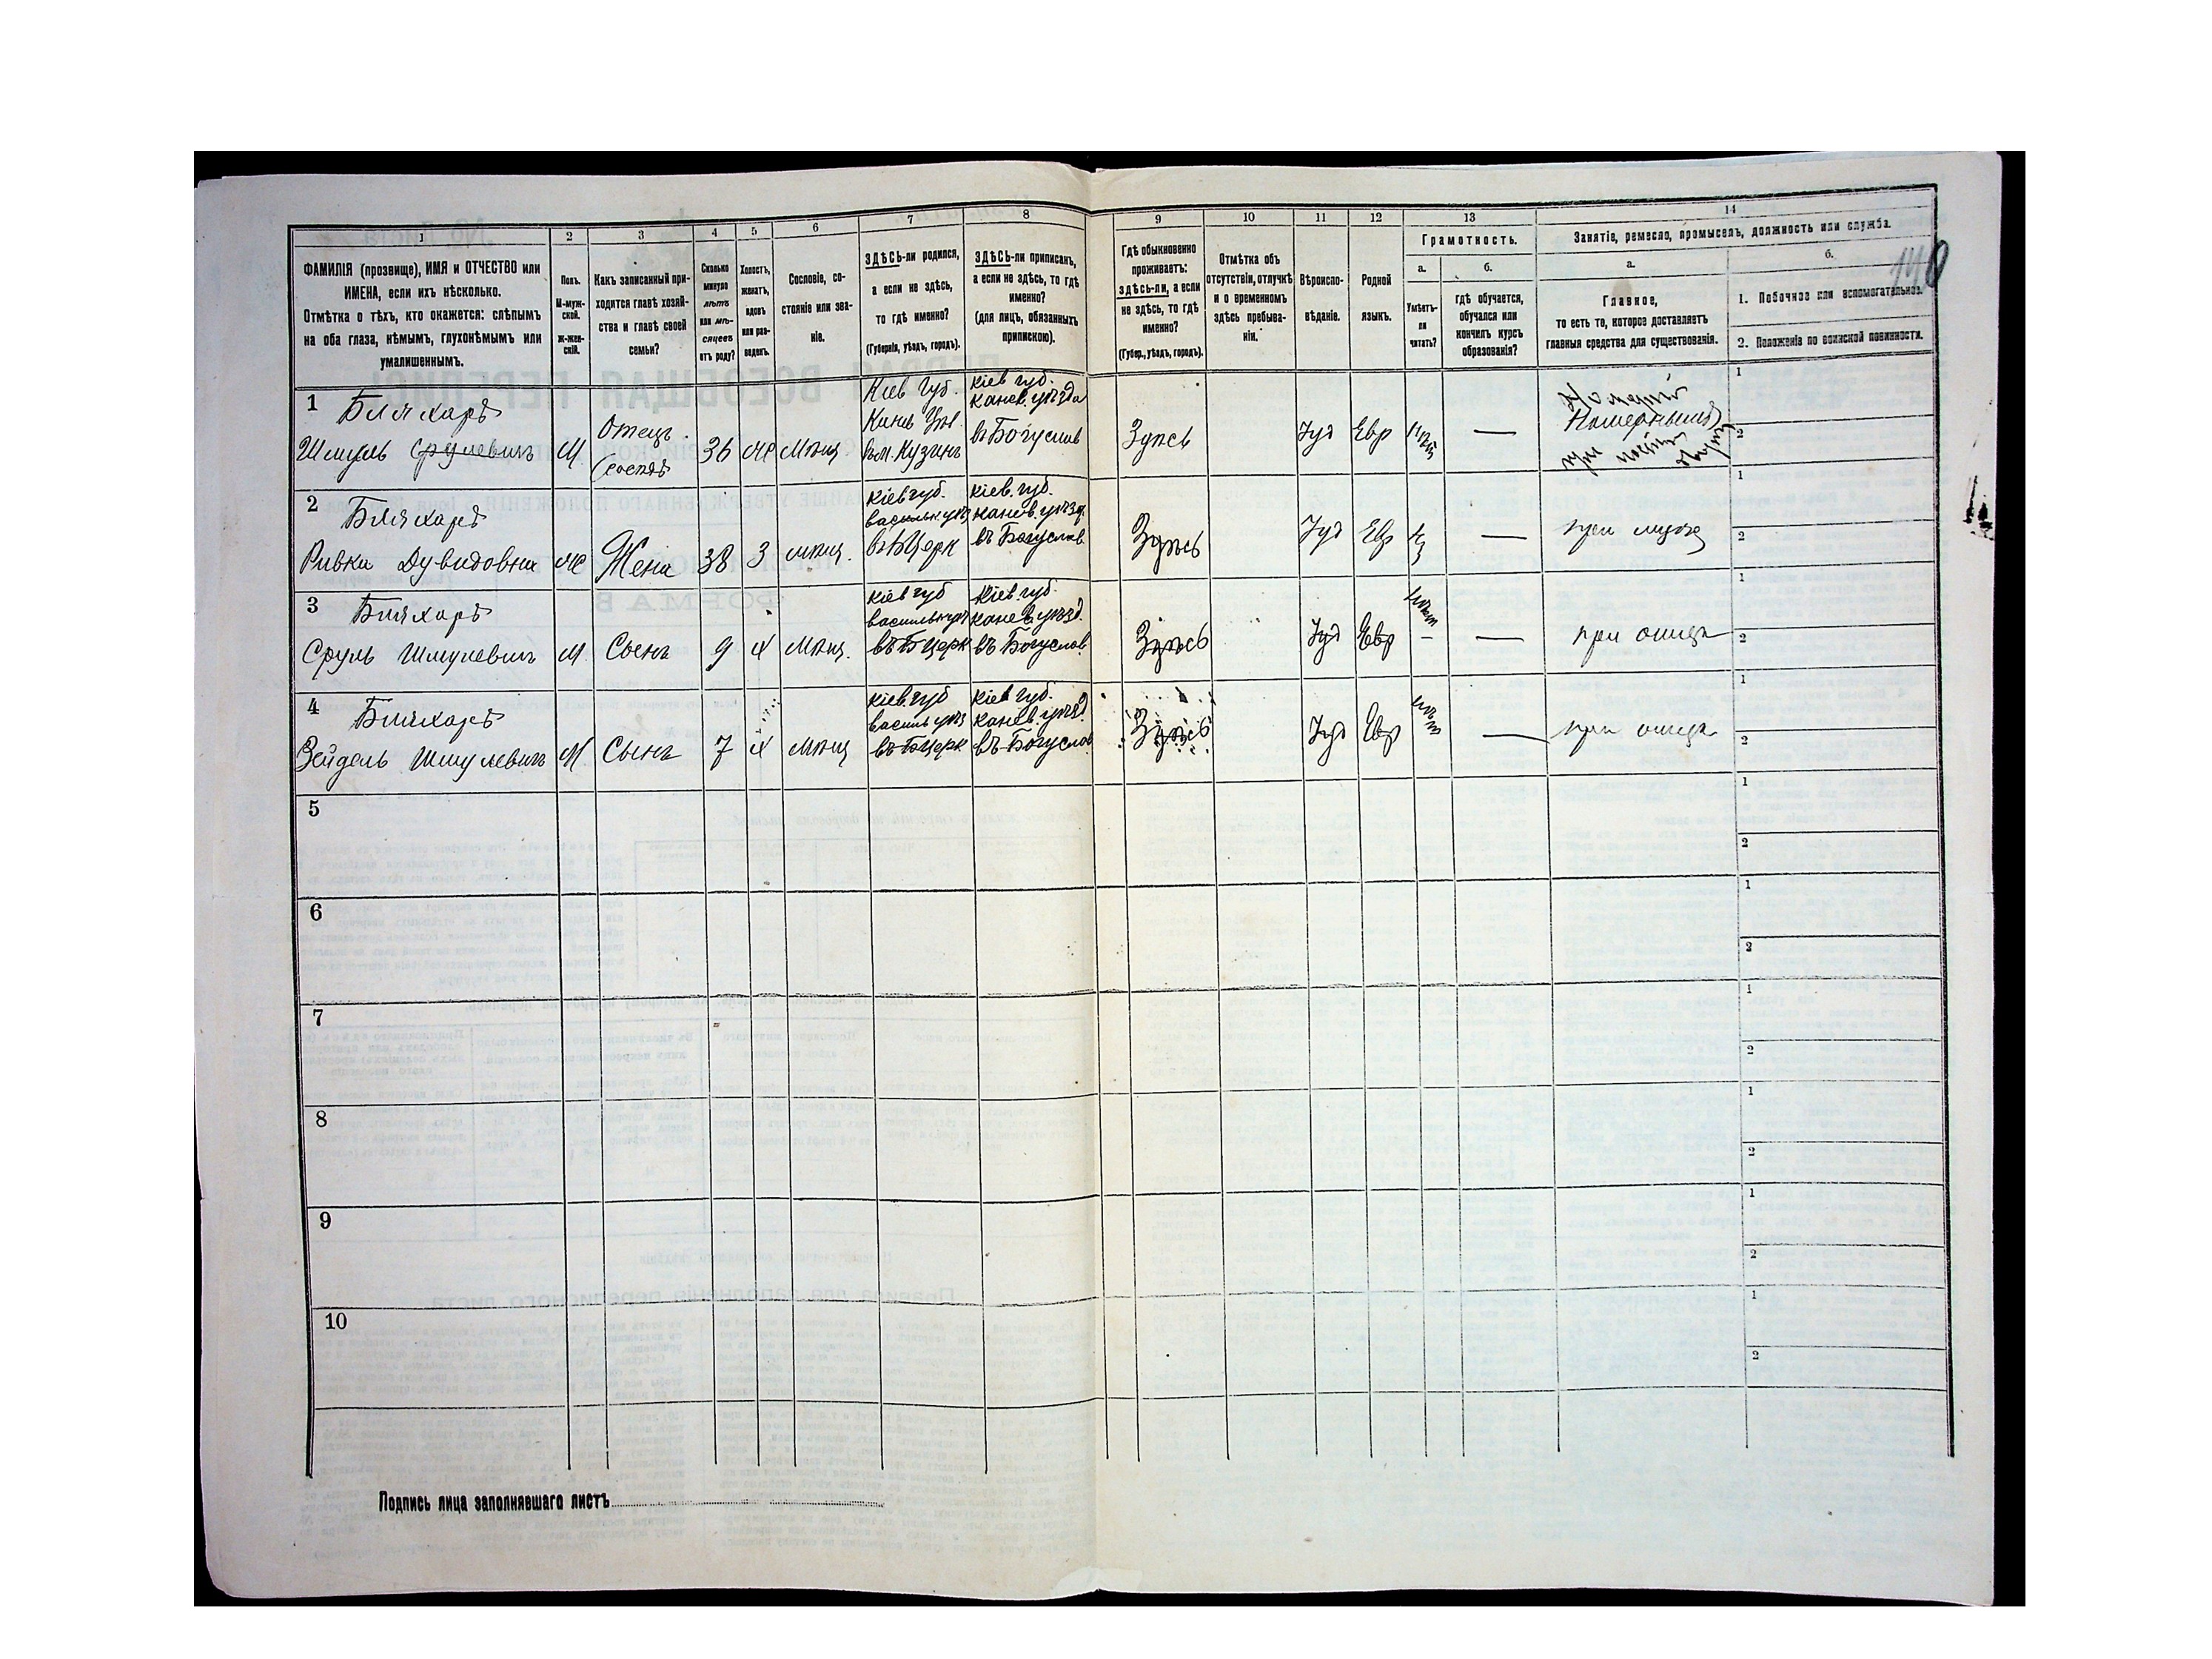 1 2 3 4 5 6 7 8 9 10 11 12 13 14
ФАМИЛІЯ (прозвище), ИМЯ и ОТЧЕСТВО или
ИМЕНА, если ихъ нѣсколько.
Отмѣтка о тѣхъ, кто окажется: слѣпымъ
на оба глаза, нѣмымъ, глухонѣмымъ или
умалишеннымъ.
Полъ.
М-муж-
ской.
ж-жен-
скій.
Какъ записанный при-
ходится главѣ хозяй-
ства и главѣ своей
семьи?
Сколько
минуло
лѣтъ
или мѣ-
сяцевъ
отъ роду?
Холостъ,
женатъ,
вдовъ
или раз-
веденъ.
Сословіе, со-
стояніе или зва-
ніе.
ЗДѢСЬ-ли родился,
а если не здѣсь,
то гдѣ именно?
(Губернія, уѣздъ, городъ).
ЗДѢСЬ-ли приписанъ,
а если не здѣсь, то гдѣ
именно?
(для лицъ, обязанныхъ
припискою).
Гдѣ обыкновенно
проживаетъ:
здѣсь-ли, а если
не здѣсь, то гдѣ
именно?
(Губер., уѣздъ, городъ).
Отмѣтка объ
отсутствіи, отлучкѣ
и о временномъ
здѣсь пребыва-
ніи.
Вѣроиспо-
вѣданіе.
Родной
языкъ.
Грамотность.
а.
Умѣетъ-
ли
читать?
б.
гдѣ обучается,
обучался или
кончилъ курсъ
образованія?
Занятіе, ремесло, промыселъ, должность или служба.
а.
Главное,
то есть то, которое доставляетъ
главныя средства для существованія.
б.
1. Побочное или вспомогательное.
2. Положеніе по воинской повинности.
140
1
Бляхаръ
Шмуль Срулевичъ
М
Отецъ
36
Мѣщ
Кіев Губ.
кіев губ.
канев. уѣзда
въ Богуслав
Здѣсь
Іуд
Евр
—
1
2
2
Бляхаръ
Ривка Дувидовна
Ж
Жена
38
З
мѣщ.
кіев губ.
васильк уѣз
въ БЦерк
кіев. губ.
канев. уѣзд.
въ Богуслав.
Здѣсь
Іуд
Евр
—
при мужѣ
1
2
3
Бляхаръ
Сруль Шмулевичъ
М
Сынъ
9
Х
Мѣщ.
кіев губ
васильк уѣз
въ БЦерк
Кіев. губ.
канев. уѣзд.
въ Богуслав.
Здѣсь
Іуд
Евр
—
при отцѣ
1
2
4
Бляхаръ
Зейдель Шмулевичъ
М
Сынъ
7
Х
Мѣщ
кіев. губ
василь уѣз
въ БЦерк
кіев губ.
канев. уѣзд.
въ Богуслав
Здѣсь
Іуд
Евр
—
при отцѣ
1
2
5
1
2
6
1
2
7
1
2
8
1
2
9
1
2
10
1
2
Подпись лица заполнявшаго листъ